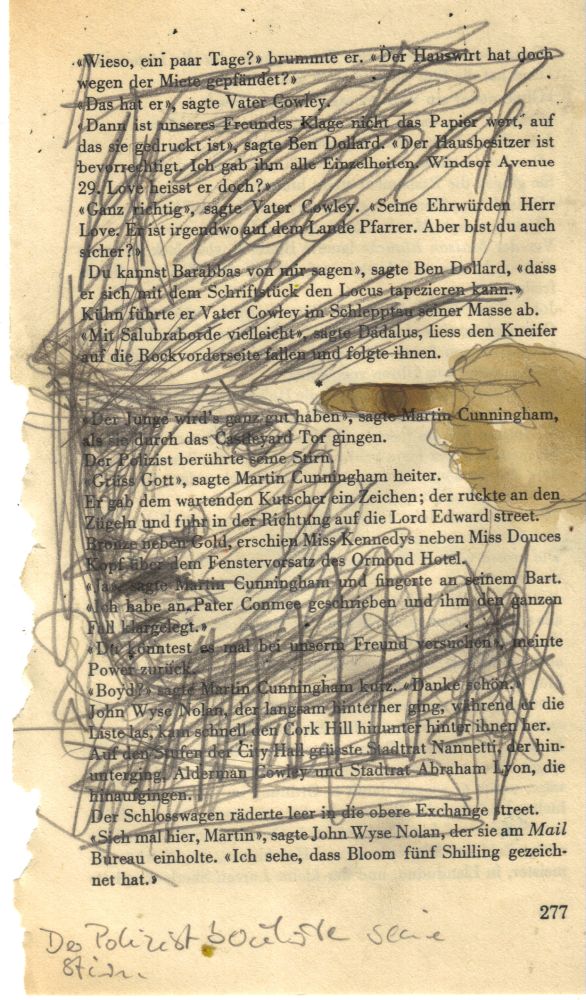 «Wieso, ein paar Tage?» brummte er. «Der Hauswirt hat doch
wegen der Miete gepfändet?»
«Das hat er», sagte Vater Cowley.
«Dann ist unseres Freundes Klage nicht das Papier wert, auf
das sie gedruckt ist», sagte Ben Dollard. «Der Hausbesitzer ist
bevorrechtigt. Ich gab ihm alle Einzelheiten. Windsor Avenue
29. Love heisst er doch?»
«Ganz richtig», sagte Vater Cowley. «Seine Ehrwürden Herr
Love. Er ist irgendwo auf dem Lande Pfarrer. Aber bist du auch
sicher?»
Du kannst Barabbas von mir sagen», sagte Ben Dollard, «dass
er sich mit dem Schriftstück den Locus tapezieren kann.»
Kühn führte er Vater Cowley im Schlepptau seiner Masse ab.
«Mit Salubraborde vielleicht», sagte Dädalus, liess den Kneifer
auf die Rockvorderseite fallen und folgte ihnen.
*
«Der Junge wird's ganz gut haben», sagte Martin Cunningham,
als sie durch das Castleyard Tor gingen.
Der Polizist berührte seine Stirn.
«Grüss Gott», sagte Martin Cunningham heiter.
Er gab dem wartenden Kutscher ein Zeichen; der ruckte an den
Zügeln und fuhr in der Richtung auf die Lord Edward street.
Bronze neben Gold, erschien Miss Kennedys neben Miss Douces
Kopf über dem Fenstervorsatz des Ormond Hotel.
«Ja», sagte Martin Cunningham und fingerte an seinem Bart.
«Ich habe an Pater Conmee geschrieben und ihm den ganzen
Fall klargelegt.»
«Du könntest es mal bei unserm Freund versuchen», meinte
Power zurück.
«Boyd?» sagte Martin Cunningham kurz. «Danke schön.»
John Wyse Nolan, der langsam hinterher ging, während er die
Liste las, kam schnell den Cork Hill hinunter hinter ihnen her.
Auf den Stufen der City Hall grüsste Stadtrat Nannetti, der hin-
unterging, Alderman Cowley und Stadtrat Abraham Lyon, die
hinaufgingen.
Der Schlosswagen räderte leer in die obere Exchange street.
«Sieh mal hier, Martin», sagte John Wyse Nolan, der sie am Mail
Bureau einholte. «Ich sehe, dass Bloom fünf Shilling gezeich-
net hat.»
277
Der Polizist berührte seine
Stirn.